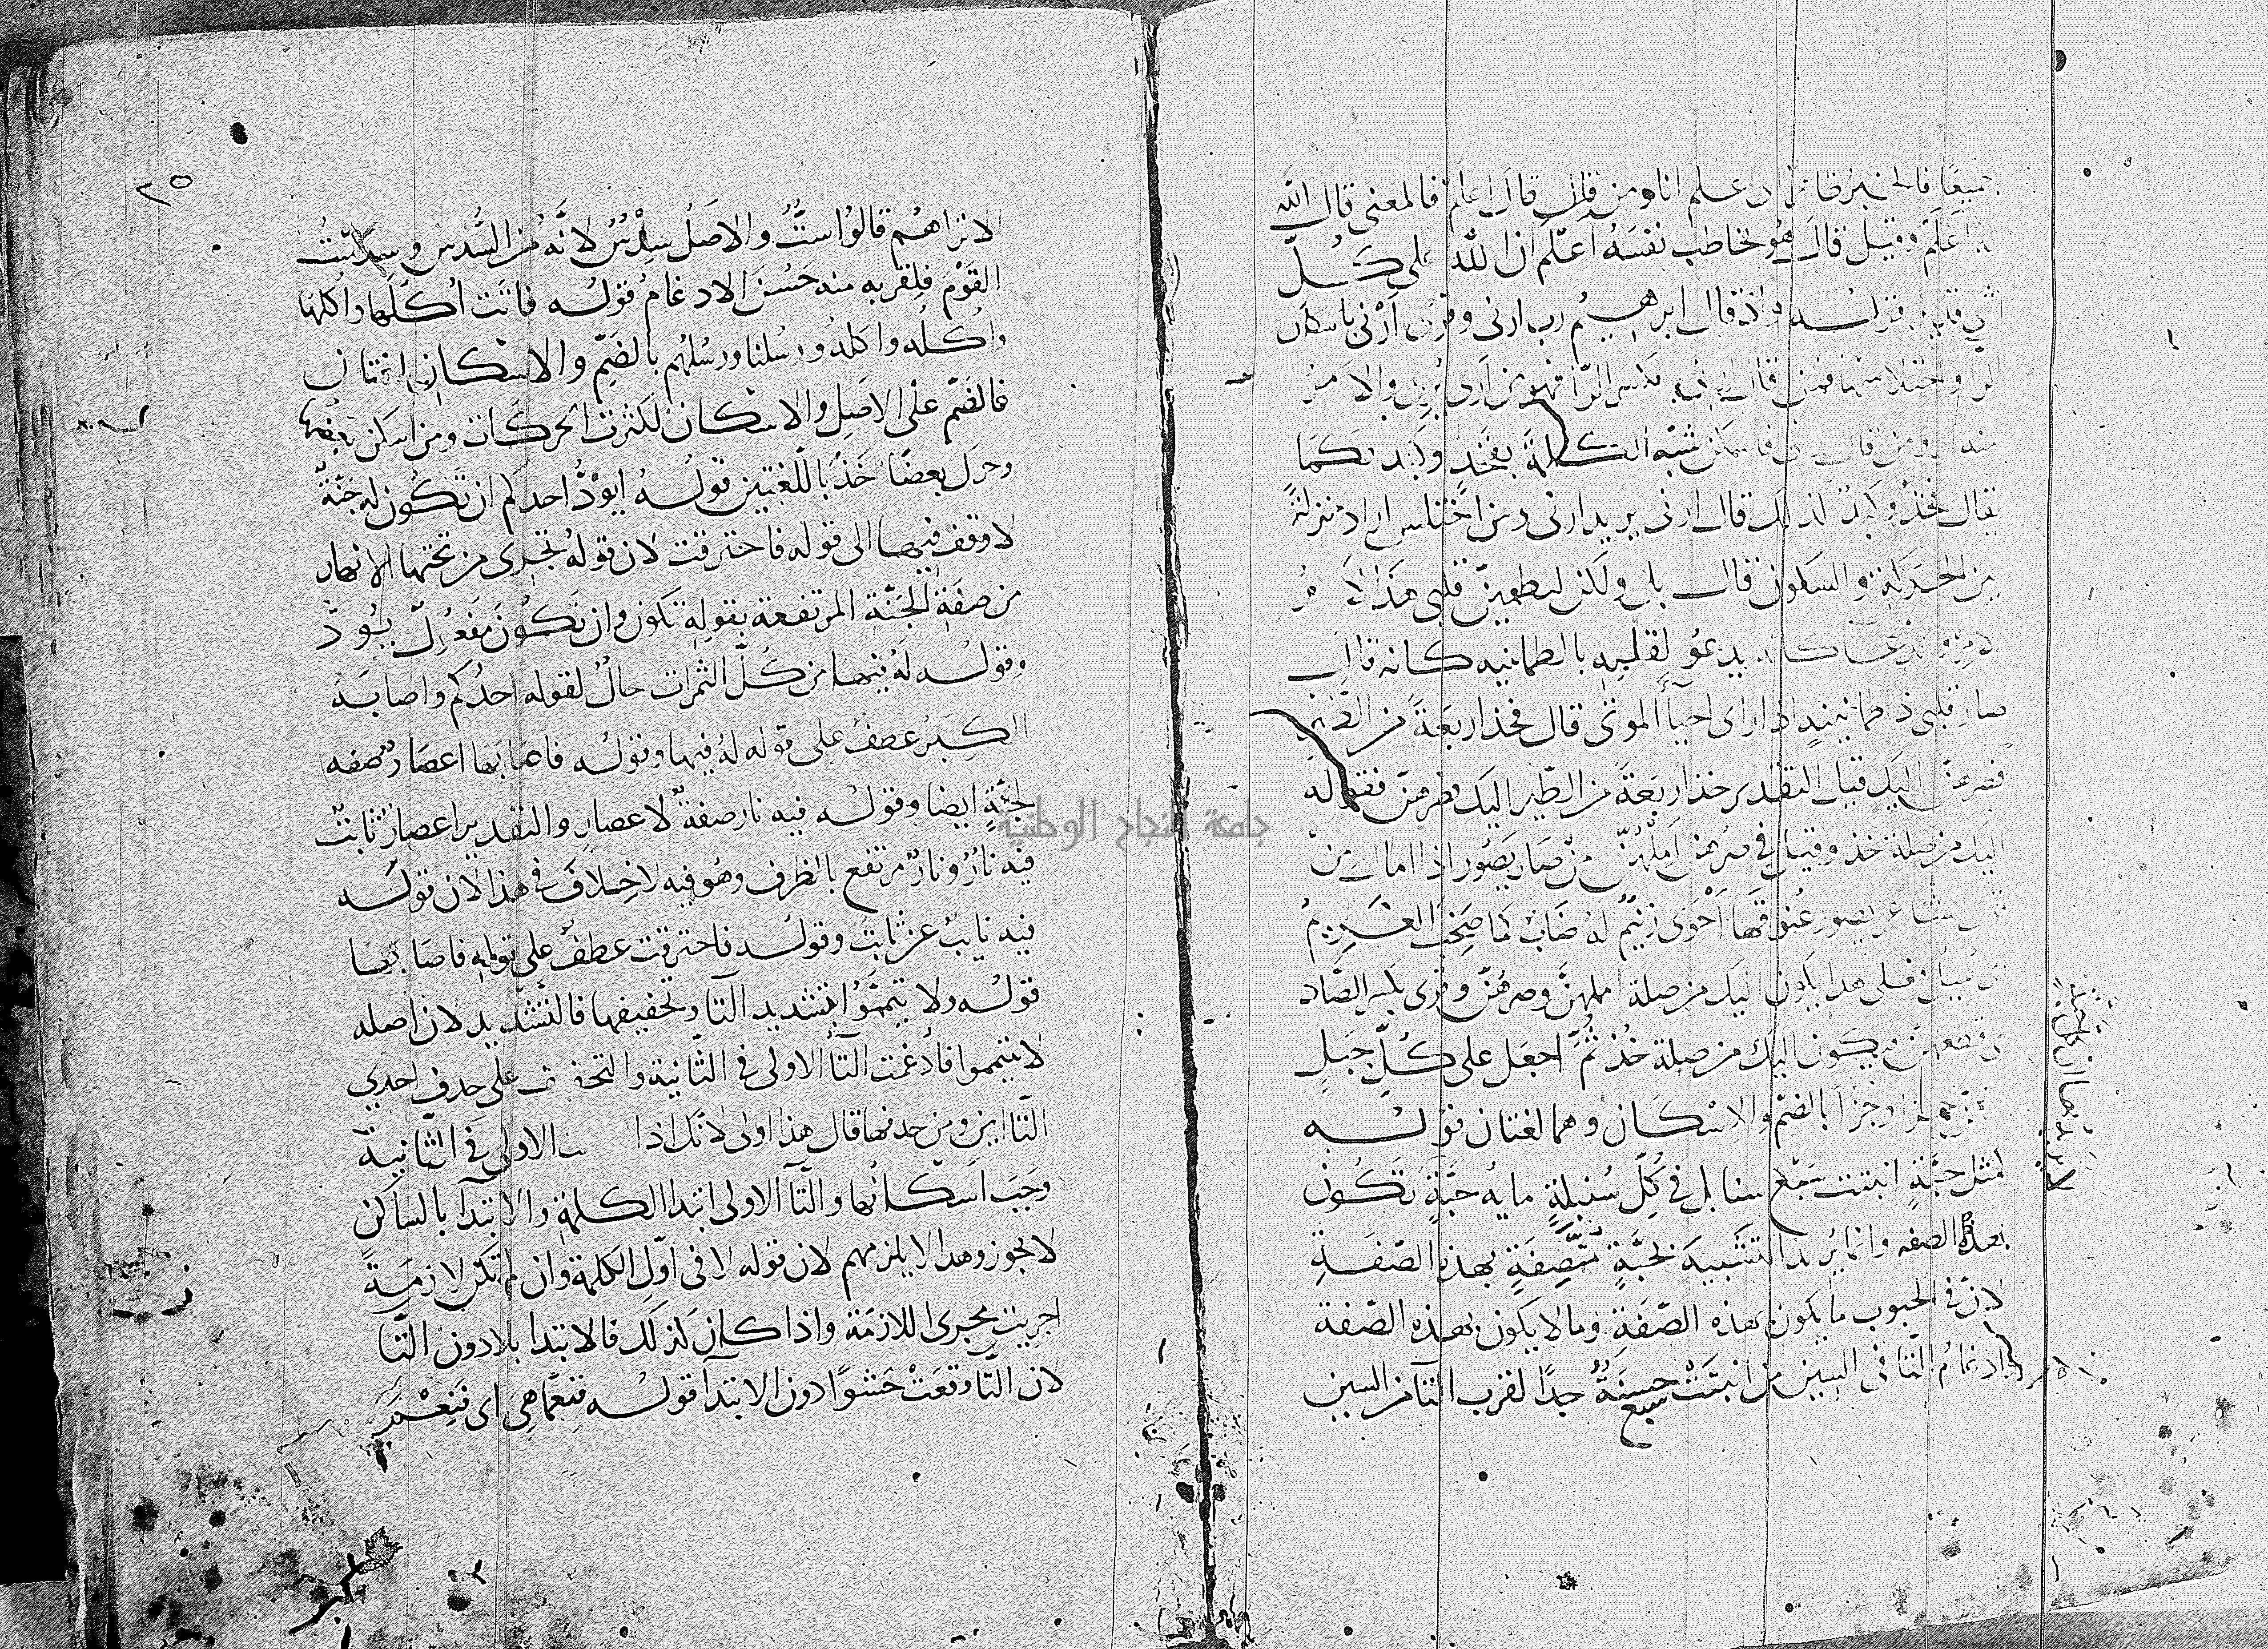 جميعًا فالخبر قال اعلم انا ومن قال قال اعلم فالمعنى قال الله
له اعلم وقيل قال هُو يخاطب نفسَهُ اعلم ان الله على كُلّ
شي قدير قولـه واذ قال ابرهيمُ رب ارنى وقرى ارْنى باسكان
الرا واختلاسها فمن قال ارنى بكسر الرّا فهو من ارى يُرى والامرُ
منه ارِ ومن قال ارْنى فاسكن شبّه الكلمة بفخذٍ وكبد فكما
يقال فخْذ وكبْد كذلك قال ارنى يريد ارنى ومن اختلس اراد منزلةً
بين الحركة والسكون قال بلى ولكن ليطمينّ قلبى هذا الامرُ
كانه يدعُو لقلبه بالطمانيه كانه قال
صار قلبى ذا طمانينةٍ اذا راى احيآ الموتى قال فخذ اربعَةً من الطّير
فصرهنّ اليك فقيل التقدير خذ اربَعةً من الطّير اليك فصرهنّ فقوله
اليك من صلة خذ وقيل فى صرهنّ امِلْهُنّ من صَار يصُور اذا امال من
قول الشاعر يصور عنوقَها اَحْوَى زنيمٌ لهُ ضابٌ كما صَخبَ الغَريمُ
اى يُميل فعلى هذا يكون اليك من صلة املهنّ وصرهُنّ وقرى بكسر الصّاد
اى قطعهنّ فيكون اليك من صلة خُذ ثُمّ اجعَل على كُلّ جَبَلٍ
منهنّ جزا وجُزُا بالضمّ والاِسْكَان وهما لغتان قولُـه
كمثل حبَّةٍ انبتت سَبْع سنابل فى كُلّ سُنبلةٍ مايه حبَّةٍ تكُون
بهذه الصفه وانما يُريد التشبيهَ بحبَّةٍ متّصِفَةٍ بهذه الصّفَةِ
لانّ فى الحبوب ما يكون بهذه الصّفَةِ وما لا يكون بهذه الصّفة
وادغامُ التا فى السين من انبَتتْ سبع حسَنَةٌ جدًا لقرب التآ من السين
٢٥
الا تراهُم قالوُا ستٌّ والاصَلُ سِدْسٌ لانَّهُ من السُّدس وسدسْتُ
القَوْمَ فلِقربه منه حَسُنَ الادغامُ قولُـه فاتَت اُكُلَها واُكْلَها
واُكُلُه واُكْلُه ورُسُلنا ورسْلُهم بالضّمِ والاسكان لغتان
فالضّم على الاصَلِ والاسكان لكثرت الحركَات ومن اسكن بعضها
وحرك بعضًا اخَذَ باللّغتين قولُـهُ ايودُّ احدكم ان تكُون له جَنّةٌ
لا وقف فيها الى قوله فاحترقت لان قولهُ تجرى من تحتها الانهار
من صفَةِ الجَنّةِ المرتفعة بقوله تكون وان تكُونَ مفعُول يودُّ
وقولُـه لَهُ فيها من كُلّ الثمرات حالٌ لقوله احدُكم واصابَهُ
الكِبَرُ عطفٌ على قوله لهُ فيها وقولُه فاصَابَها اعصَارٌ صفه
لجنَّةٍ ايضا وقولُـه فيه نار صفةٌ لاعصارٍ والتقدير اعصارٌ ثابتٌ
فيه نارٌ ونارٌ مرتفع بالظرف وهُو فيه لا خِلافَ فى هذا لان قولَـه
فيه نايبٌ عن ثابتٌ وقولُـه فاحترقت عطفٌ على قوله فاصَابَها
قولُـه ولا تيمَّمُوا بتشديد التآ وتخفيفها فالتَّشْديد لان اصله
لا تتيمموا فأدغمت التآ الاولى فى الثّانية والتخفيف على حذف احدي
التّاايين ومن حذفها قال هذا اولى لانّك اذا الاولى فى الثّانية
وجَبَ اسْكَانُها والتآ الاولى ابتدا الكلمة والابتدآ بالساكن
لا يجوز وهذا لا يلزمهم لان قوله لا فى اوّلِ الكلمة وان لم تكن لازمَةً
اجريت مجرى اللازمَة واذا كان كذلك فالابتدا بلا دون التّا
لان التّآ وقعَتْ حَشوًا دون الابتدآ قولُـه فنِعمّا هِىَ اى فَنِعْمَ
جامعة النجاح الوطنية